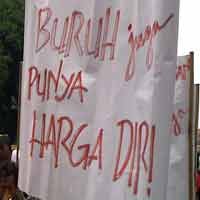 BURUH juga
PUNYA
HARGA DIRI!